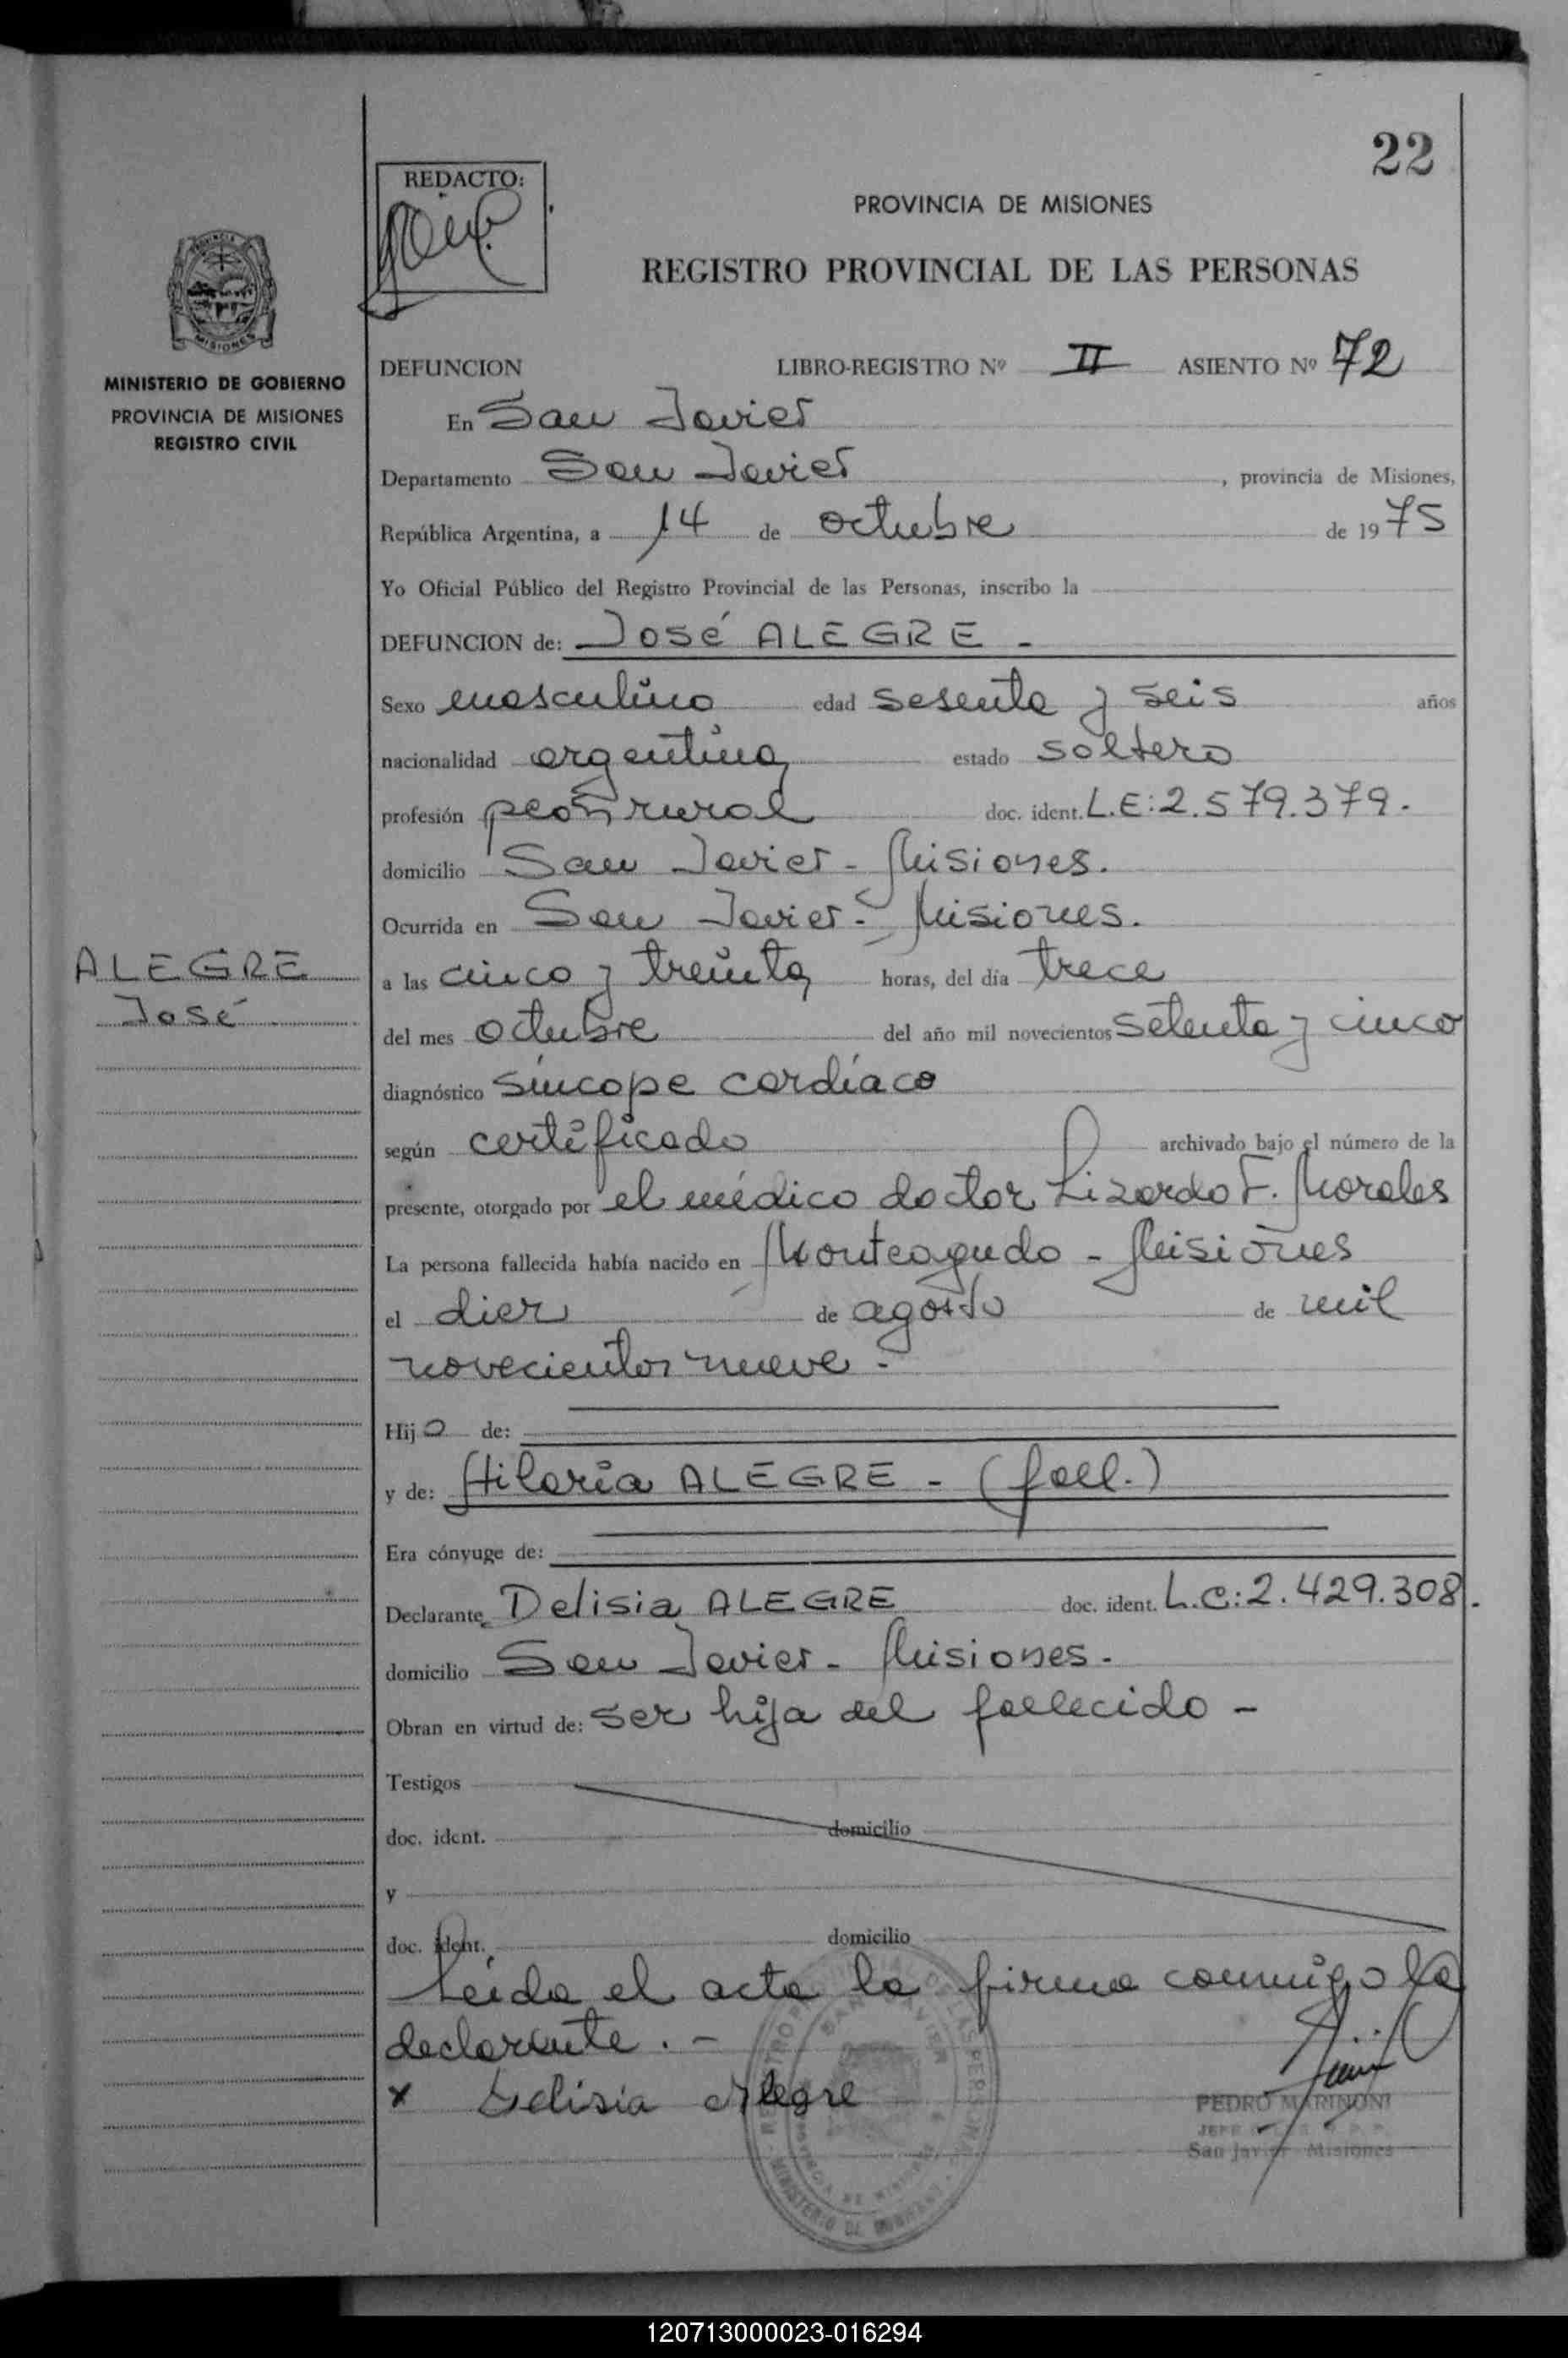 22
REDACTO:
PROVINCIA DE MISIONES
REGISTRO PROVINCIAL DE LAS PERSONAS
MINISTERIO DE GOBIERNO
PROVINCIA DE MISIONES
REGISTRO CIVIL
DEFUNCION LIBRO-REGISTRO Nº II ASIENTO Nº 72
En San Javier
Departamento San Javier, provincia de Misiones,
República Argentina, a 14 de octubre de 1975
Yo Oficial Público del Registro Provincial de las Personas, inscribo la
DEFUNCION de: José ALEGRE -
Sexo masculino edad sesenta y seis años
nacionalidad argentina estado soltero
profesión peón rural doc. ident. L.E:2.579.379.
domicilio San Javier - Misiones.
Ocurrida en San Javier - Misiones.
ALEGRE
José
a las cinco y treinta horas, del día trece
del mes octubre del año mil novecientos setenta y cinco
diagnóstico síncope cardíaco
según certificado archivado bajo el número de la
presente, otorgado por el médico doctor Lizardo F. Morales
La persona fallecida había nacido en Monteagudo - Misiones
el diez de agosto de mil
novecientos nueve -
Hijo de:
y de: Hilaria ALEGRE - (fall.)
Era cónyuge de:
Declarante Delisia ALEGRE doc. ident. L.C:2.429.308.
domicilio San Javier - Misiones.
Obran en virtud de: ser hija del fallecido -
Testigos
doc. ident. domicilio
y
doc. ident. domicilio
Leída el acta la firma conmigo la
declarante. -
x Delisia Alegre
PEDRO MARINONI
San Javier - Misiones
120713000023-016294